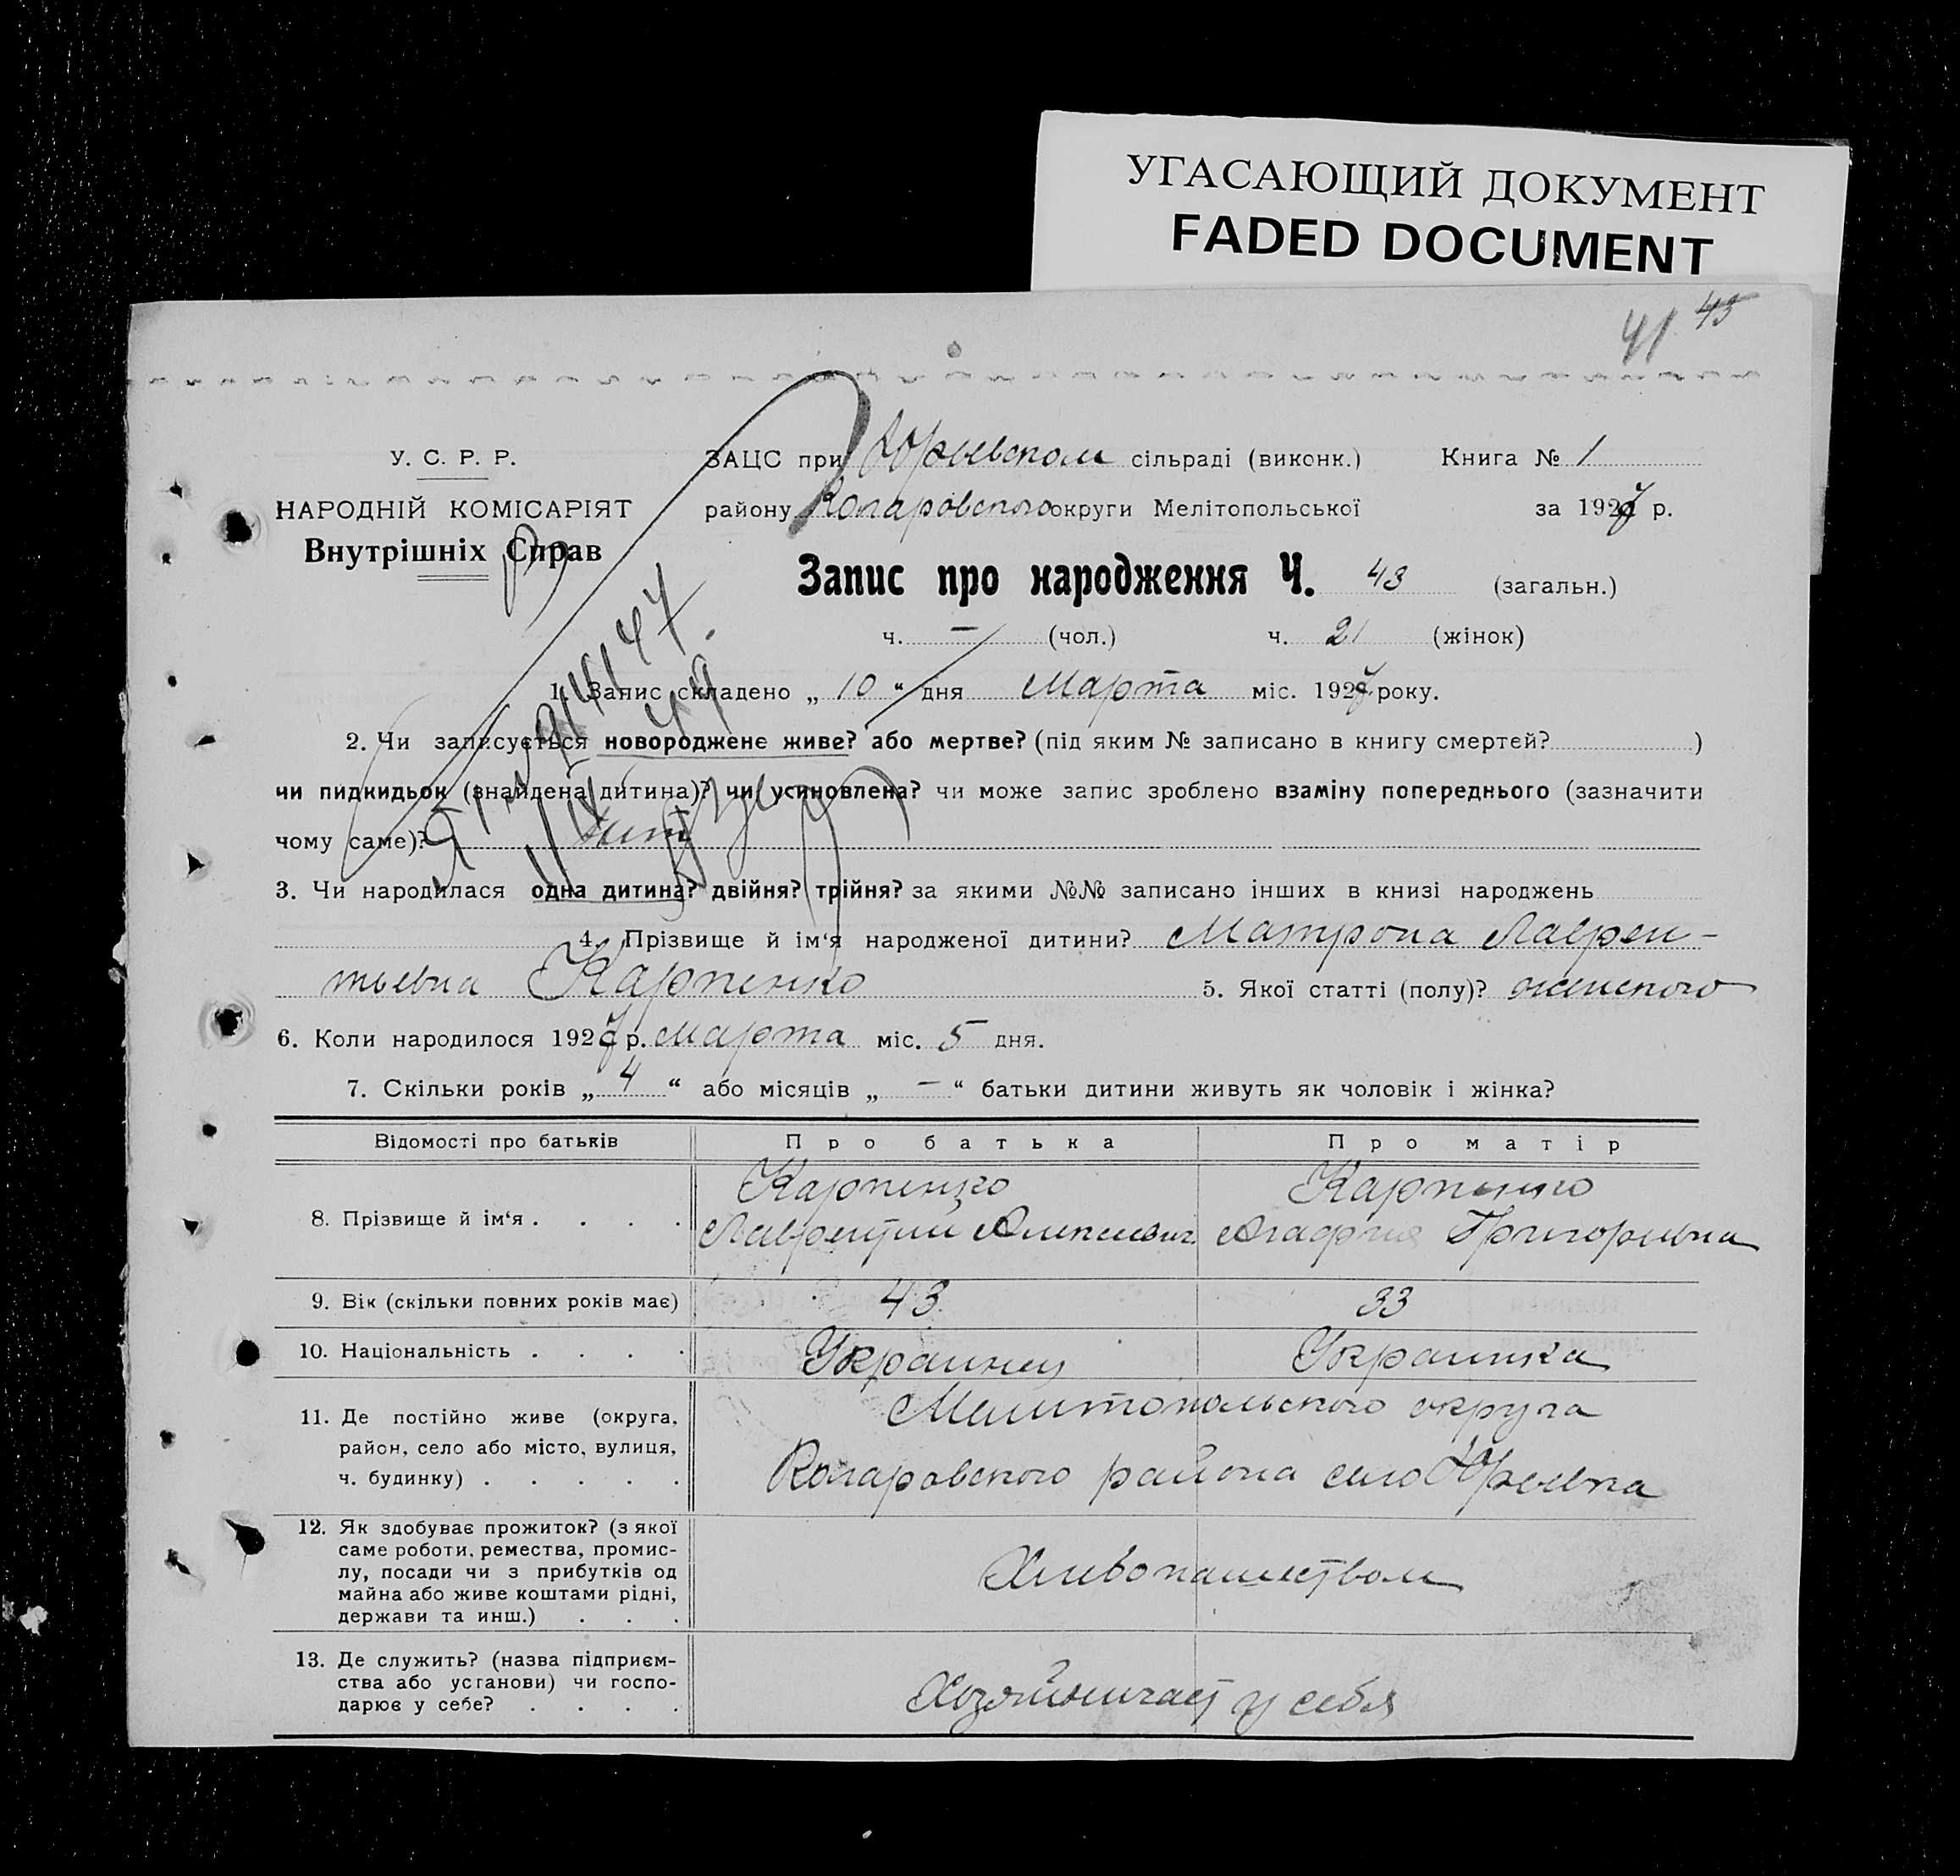 УГАСАЮЩИЙ ДОКУМЕНТ
FADED DOCUMENT
41 45
У. С. Р. Р.
НАРОДНІЙ КОМІСАРІЯТ
Внутрішніх Справ
ЗАЦС при Юрьевском сільраді (виконк.) Книга № 1
району Коларовского округи Мелітопольської за 1927 р.
Запис про народження Ч. 43 (загальн.)
ч. — (чол.) ч. 21 (жінок)
1. Запис складено „ 10 “ дня Марта міс. 1927 року.
2. Чи записується новороджене живе? або мертве? (під яким № записано в книгу смертей? )
чи пидкидьок (знайдена дитина)? чи усиновлена? чи може запис зроблено взаміну попереднього (зазначити
чому саме)?
3. Чи народилася одна дитина? двійня? трійня? за якими №№ записано інших в книзі народжень
4. Прізвище й ім‘я народженої дитини? Матрона Лаврен-
тьевна Карпенко 5. Якої статті (полу)? женского
6. Коли народилося 1927 р. марта міс. 5 дня.
7. Скільки років „ 4 “ або місяців „ — “ батьки дитини живуть як чоловік і жінка?
Відомості про батьків Про батька Про матір
8. Прізвище й ім‘я . . . . Карпенко Лаврентий Алексеевич Карпенко Агафия Григорьевна
9. Вік (скільки повних років має) 43 33
10. Національність . . . . Украинец Украинка
11. Де постійно живе (округа,
район, село або місто, вулиця,
ч. будинку) . . . . .
Мелитопольского округа
Коларовского района село Юрьевка
12. Як здобуває прожиток? (з якої
саме роботи, ремества, промис-
лу, посади чи з прибутків од
майна або живе коштами рідні,
держави та инш.) . . .
Хлебопашеством
13. Де служить? (назва підприєм-
ства або установи) чи госпо-
дарює у себе? . . . .
Хозяйничает у себя